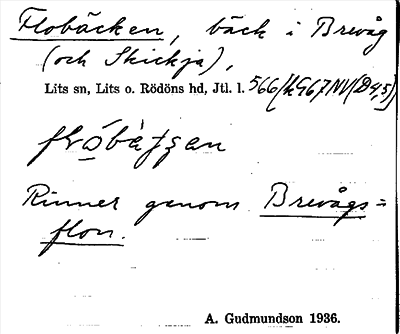 Flobäcken, bäck i Brevåg
(och Skickja),
Lits sn, Lits o. Rödöns hd, Jtl. l. 566/k967NV(D4,5)
Rinner genom Brevågs=
flon.
A. Gudmundson 1936.